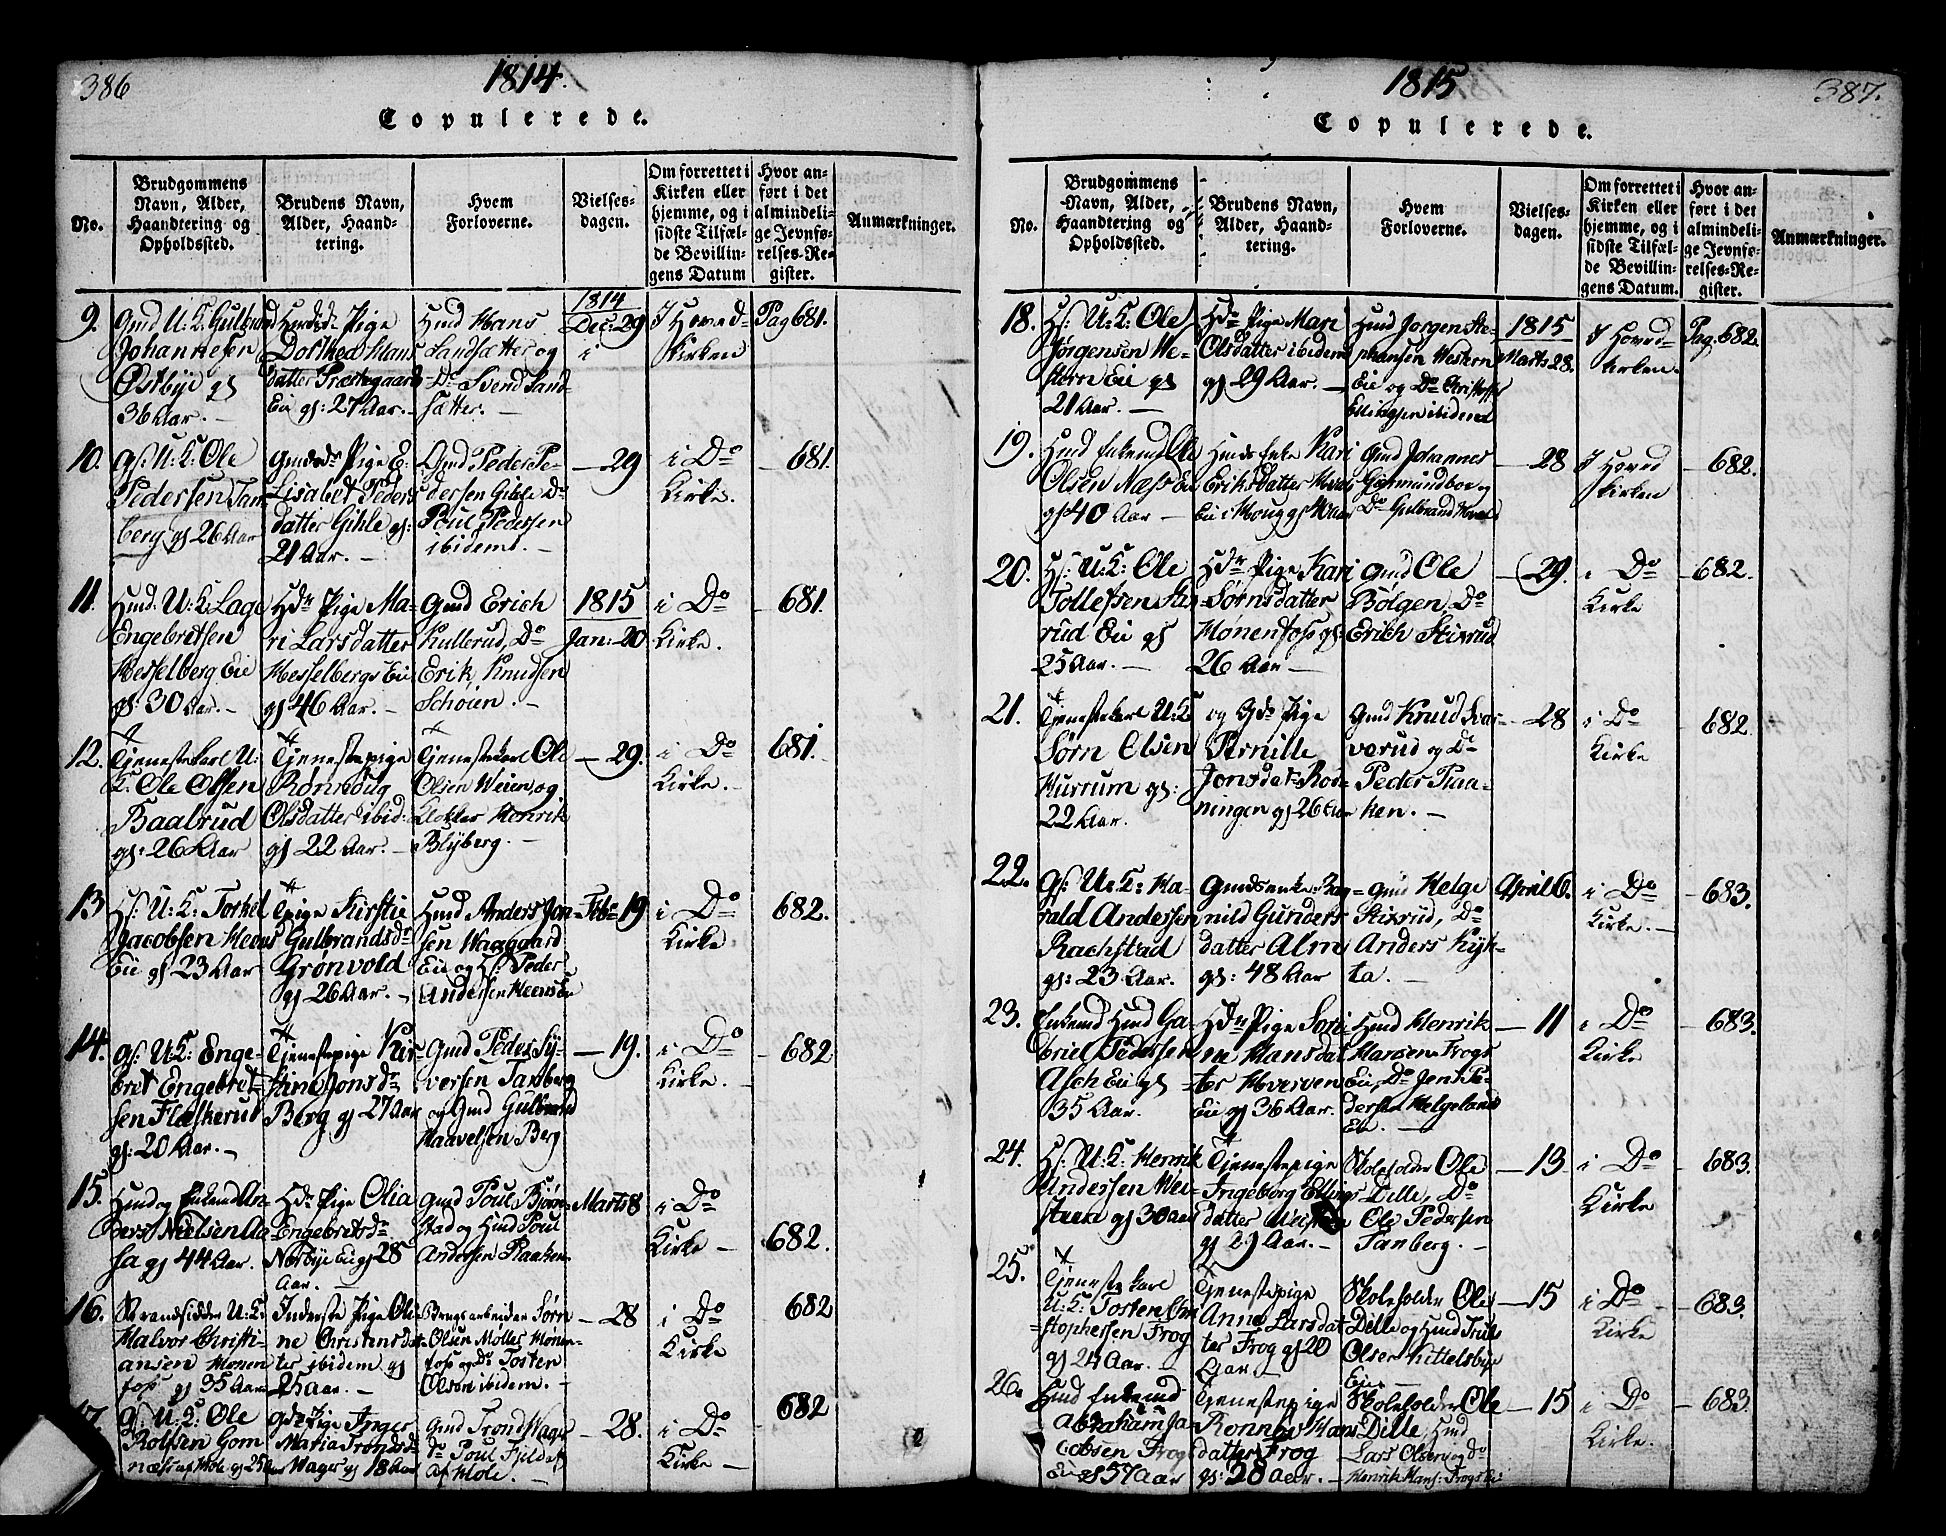 386
1814.
Copulerede.
No.
Brudgommens
Navn, Alder,
Haandtering og
Opholdssted.
Brudens Navn,
Alder, Haand-
tering.
Hvem
Forloverne.
Vielses-
dagen.
Om forrettet i
Kirken eller
hjemme, og i
sidste Tilfæl-
de Bevillin-
gens Datum
Hvor an-
ført i det
almindeli-
ge Jevnfø-
relses-Re-
gister.
Anmærkninger.
9.
Gmd U: K: Gulbrand
Johannesen
Østbye gl
36 Aar.
Dorthea Hans
datter Præstegaards
Eie gl: 27 Aar. —
Hmd Hans
Landsætter og
Do Svend Land-
sætter. —
1814
Dec: 29
I Hoved-
kirken
Pag 681.
10.
Gs: U: K: Ole
Pedersen Tan-
berg gl 26 Aar
Gmds Pige E-
Lisabet Peders
datter Gihle gl:
21 Aar. —
Gmd Peder Pe-
dersen Gihle Do
Poul Pedersen
ibidem. —
— 29
i Do
Kirke.
— 681.
11.
Hmd: U: K: Lage
Engebritsen
Hesselberg Eie
gl: 30 Aar. —
Hdr Pige Ma-
ri Larsdatter
Hesselbergs Eie
gl 46 Aar. —
Gmd Erich
Kullerud, Do
Erik Knudsen
Schöien. —
1815
Jan: 20
i Do
Kirke.
— 681.
12.
Tjenestekarl U:
K: Ole Olsen
Baalrud
gl: 26 Aar
Tjenestepige
Rønnoug
Olsdatter ibid:
gl 22 Aar. —
Tjenestekarl Ole
Olsen Weien og
Henrik
Blyberg. —
— 29.
i Do
Kirke. —
681.
13
Hs: U: K: Torkel
Jacobsen Hens
Eie gl 23 Aar
Tpige Kirstie
Gulbrandsdr
Grønvold
gl 26 Aar. —
Hmd Anders Jon-
sen Waagaard
Eie og Hs: Peder
Andersen Heens Eie
Febr 19
i Do
Kirke
682.
14.
Gs: U: K: Enge-
bret Engebret-
sen Flæskerud
gl: 20 Aar. —
Tjenestepige Kir-
stine Jonsdr
Berg gl 27 Aar
Gmd Peder Sy-
versen Tanberg
og Gmd Gulbrand
Haavelsen Berg
— 19.
i Do
Kirke. —
— 682
15.
Hmd og Enkemd An-
ders Nielsen Aa-
sa gl 44 Aar.
Hdr Pige Olia
Engebretsdr
Norbye Eie gl 28
Aar. —
Gmd Poul Bjøre-
stad og Hmd Poul
Andersen Plaaken
Marts 8
i Do
Kirke —
— 682.
16.
Strandsidder U: K:
Halvor Christi-
ansen Hönen
fos gl 35 Aar
Inderste Pige Oli-
ne Christensdat-
ter ibidem gl
25 Aar. —
Brugsarbeider Sørn
Olsen Möller Hönen-
fos og Do Tosten
Olsen ibidem. —
— 28
i Do
Kirke
682
17.
Gs: U: K: Ole
Rolfsen Gom
næs af Hole gl 25 Aar
Gdr Pige Inger
Maria Trondsdr
Wager gl 18 Aar
Gmd Trond Wager
Do Poul Fjeldst
af Hole.
— 28.
i Do
Kirke. —
682
1815
387.
Copulerede.
No.
Brudgommens
Navn, Alder,
Haandtering og
Opholdssted.
Brudens Navn,
Alder, Haand-
tering.
Hvem
Forloverne.
Vielses-
dagen.
Om forrettet i
Kirken eller
hjemme, og i
sidste Tilfæl-
de Bevillin-
gens Datum.
Hvor an-
ført i det
almindeli-
ge Jevnfø-
relses-Re-
gister.
Anmærkninger.
18.
Hs: U: K: Ole
Jørgensen We-
stern Eie gl
21 Aar. —
Hdr Pige Mari
Olsdatter ibidem
gl 29 Aar. —
Hmd Jorgen Ste-
phansen Western
Eie og Do Christoff
Ellingsen ibidem
1815
Marts 28.
I Hoved-
kirken.
Pag. 682.
19.
Hmd Enkemd Ole
Olsen Næss Eie
gl 40 Aar —
Hmds Enke Kari
Eriksdatter
Eie i Houg gl 40 Aar
Gmd Johannes
Gormundboe og
Do Gulbrand
— 28
I Hoved
kirken
— 682.
20.
Hs: U: K: Ole
Tollefsen Sti-
rud Eie gl
25 Aar. —
Hdr Pige Kari
Sørnsdatter
Hönenfoss gl:
26 Aar —
Gmd Ole
Bølgen, Do
Erich Stixrud
— 29.
i Do
Kirke
— 682.
21.
Tjenestekarl U: K
Sørn Olsen
Hurrum gl:
22 Aar.
og Gdr Pige
Pernille
Jonsdatr Röd-
ningen gl 26 Aar
Gmd Knud Svar-
verud og Dr
Peder Plaa-
ken. —
— 28
i Do
Kirke
682.
22.
Gs: U: K: Ha-
rald Andersen
Rachstad
gl: 23 Aar.
Gmdsenke Rag-
nild Gunders
datter Alm
gl: 48 Aar
Gmd Helge
Stixrud, Do
Anders Kyh-
ta. —
April 6.
i Do
Kirke. —
— 683.
23.
Enkemd Hmd Ga-
briel Pedersen
Asch Eie gl
35 Aar.
Hdr Pige Sori-
ne Hansdat-
ter Hverven
Eie gl 36 Aar.
Hmd Henrik
Hansen Frogs
Eie, Do Jens Pe-
dersen Helgelands
Eie. —
— 11
i Do
Kirke
— 683.
24.
Hs: U: K: Henrik
Andersen Wei-
staen gl 30 Aar
Tjenestepige
Ingeborg Ellings
datter
gl 29 Aar. —
Skoleholder Ole
Dille, Do
Ole Pedersen
Tanberg. —
— 13
i Do
Kirke
— 683.
25.
Tjenestekarl
U: K: Tosten Chri
stophersen Frog
gl 24 Aar. —
Tjenestepige
Anne Larsdat
ter Frog gl 20
Aar —
Skoleholder Ole
Dille og Hmd Truls
Olsen Kittelsbye
Eie. —
— 15
i Do —
Kirke
— 683.
26.
Hmd Enkemd
Abraham Ja-
cobsen Frog
Eie gl 57 Aar
Tjenestepige
Ronnov Hans
datter Frog
gl: 28 Aar. —
Skoleholder Ole
Dille, Hmd
Lars Olsberg og Do
Henrik Hans: Frogs Eie
— 15
i Do
Kirke.
— 683.